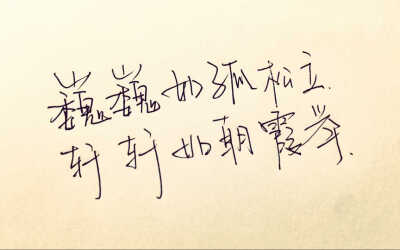 巍巍如孤松立.
轩轩如朝霞举.